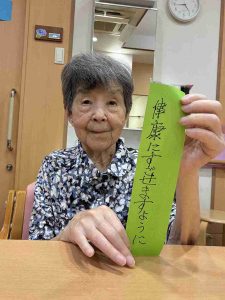 健康にすごせますように